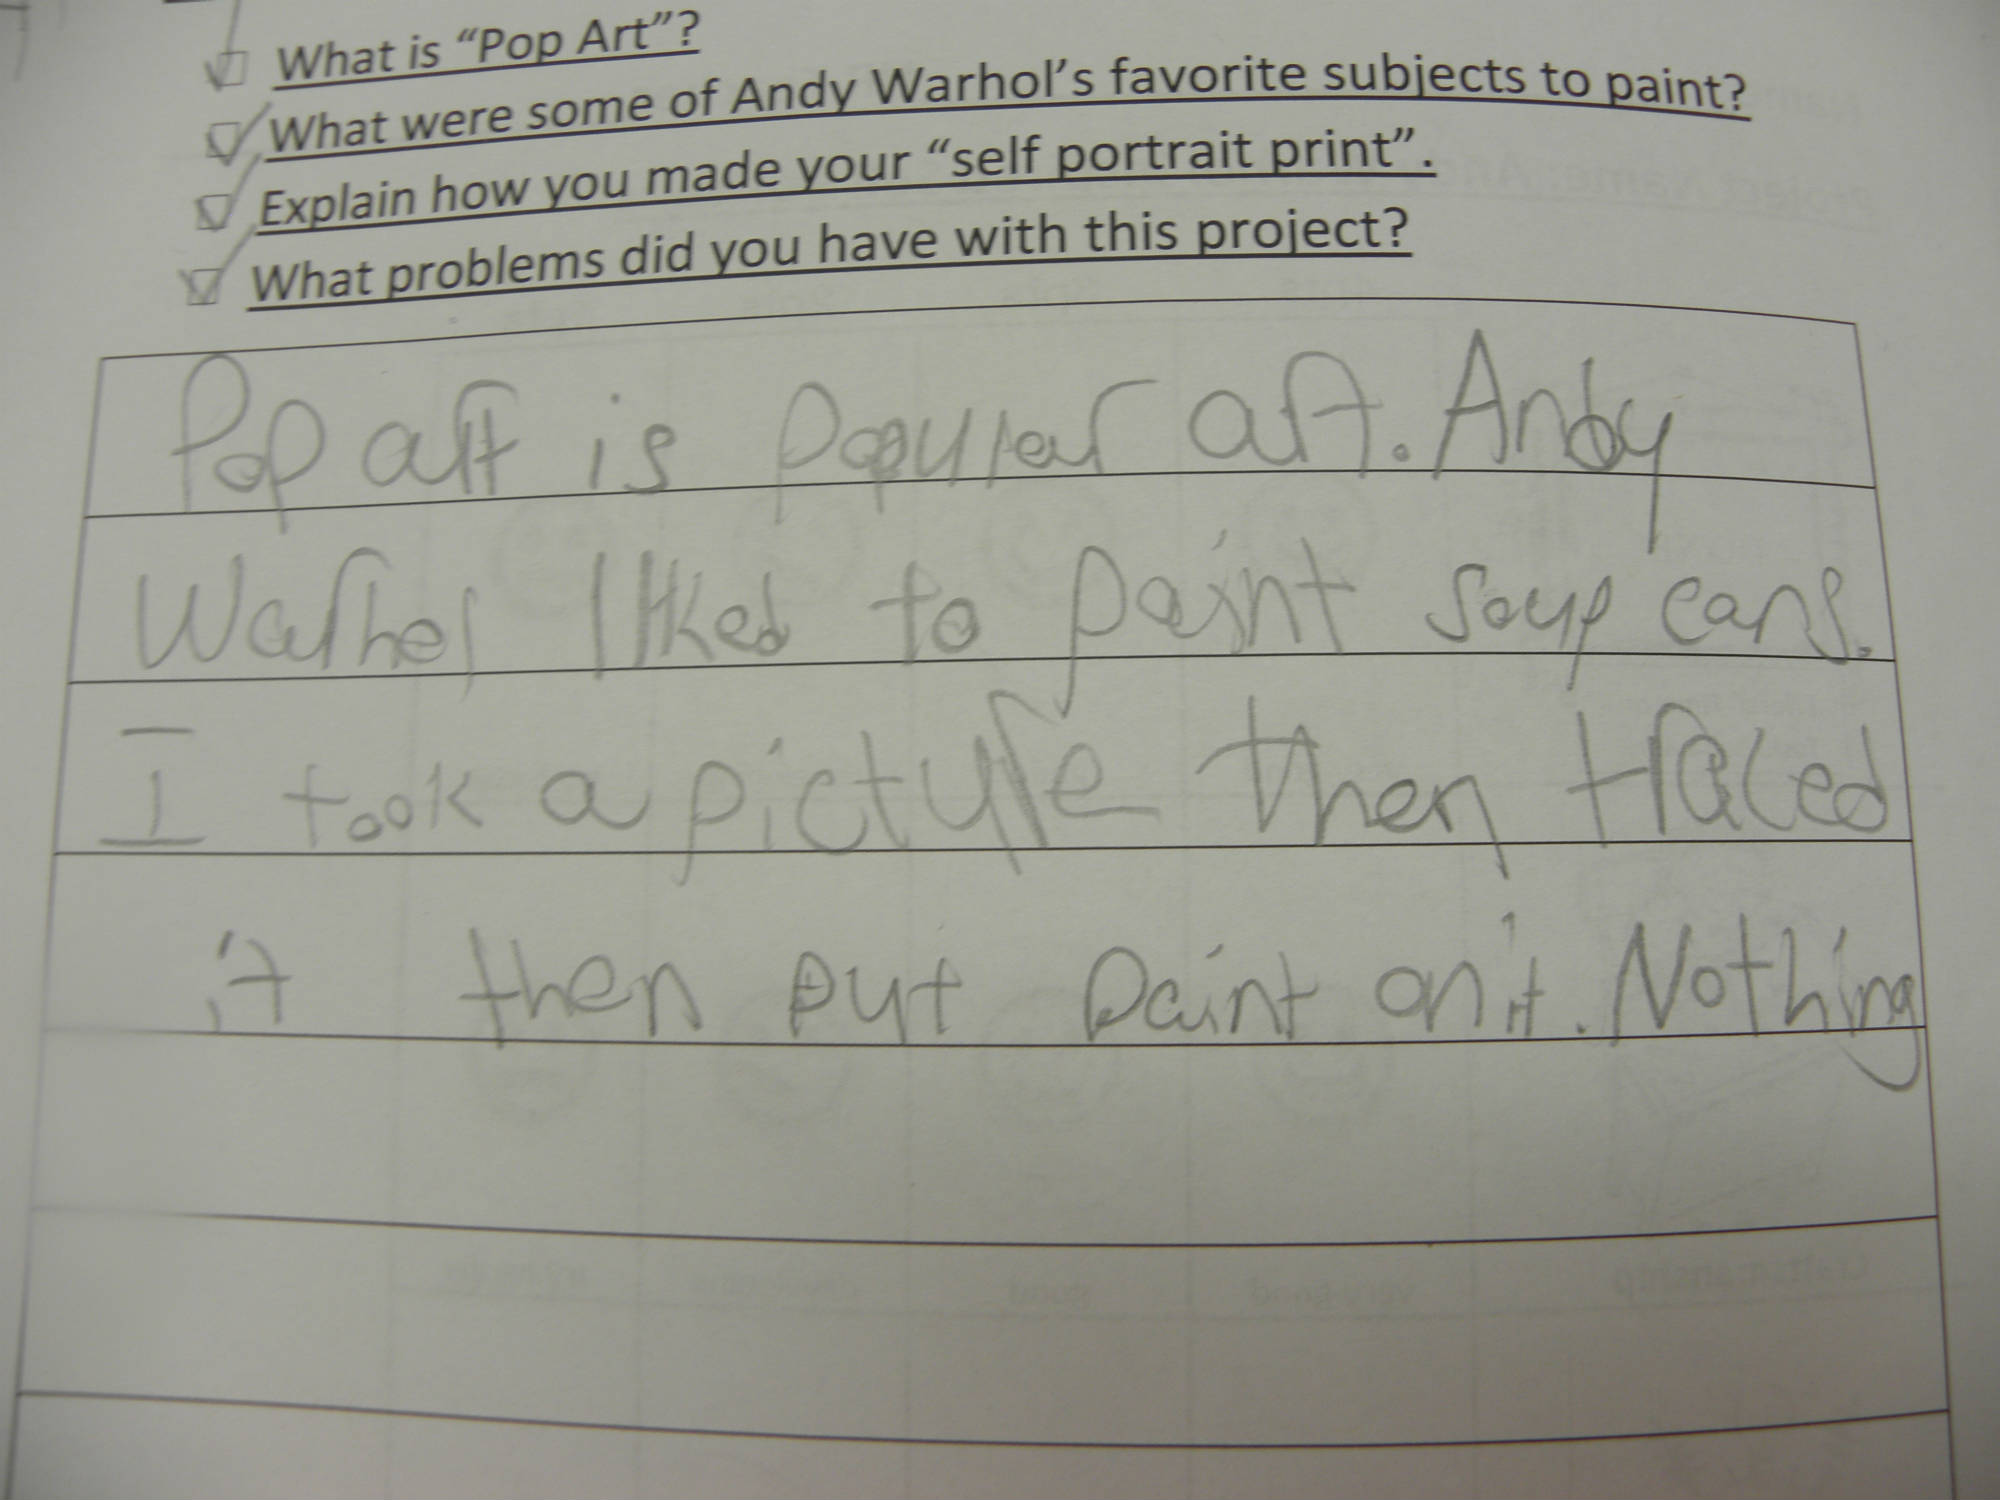 What is “Pop Art”?
What were some of Andy Warhol’s favorite subjects to paint?
Explain how you made your “self portrait print”.
What problems did you have with this project?
Pop art is populer art. Andy
Warhel liked to paint soup cans.
I took a picture then traced
it then put paint on it. Nothing